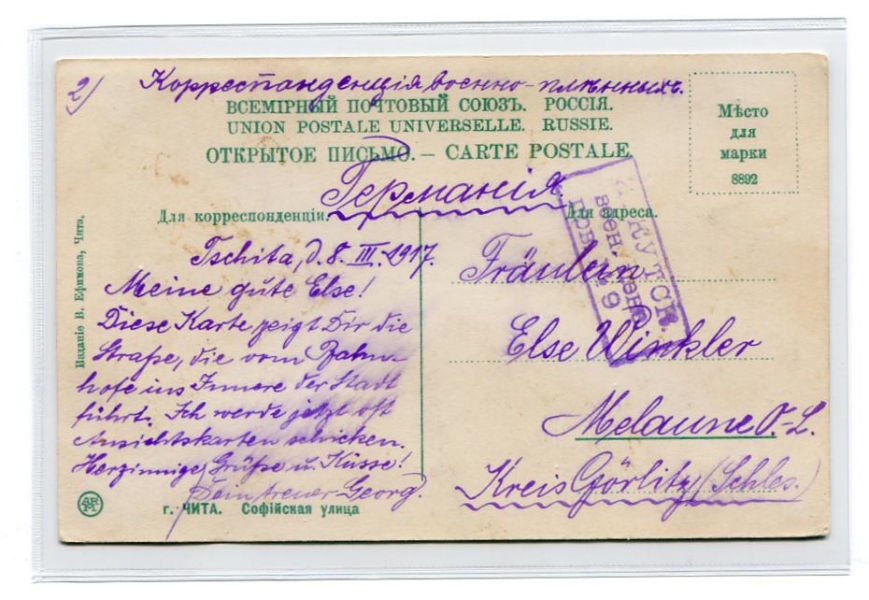 2)
Корреспанденція военно-плѣнныхъ.
ВСЕМІРНЫЙ ПОЧТОВЫЙ СОЮЗЪ. РОССІЯ.
UNION POSTALE UNIVERSELLE. RUSSIE.
ОТКРЫТОЕ ПИСЬМО. — CARTE POSTALE.
Мѣсто
для
марки
8892
Германія
Для корреспонденціи.
Для адреса.
Tschita, d. 8. III. 1917.
Meine gute Else!
Diese Karte zeigt Dir die
Straße, die vom Bahn-
hofe ins Innere der Stadt
führt. Ich werde jetzt oft
Ansichtskarten schicken.
Herzinnige Grüße u. Küsse!
Dein treuer Georg.
Fräulein
Else Winkler
Melaune O.-L.
Kreis Görlitz (Schles.)
ИРКУТСК.
воен. ценз.
9
Изданіе В. Ефимова, Чита.
г. ЧИТА. Софійская улица